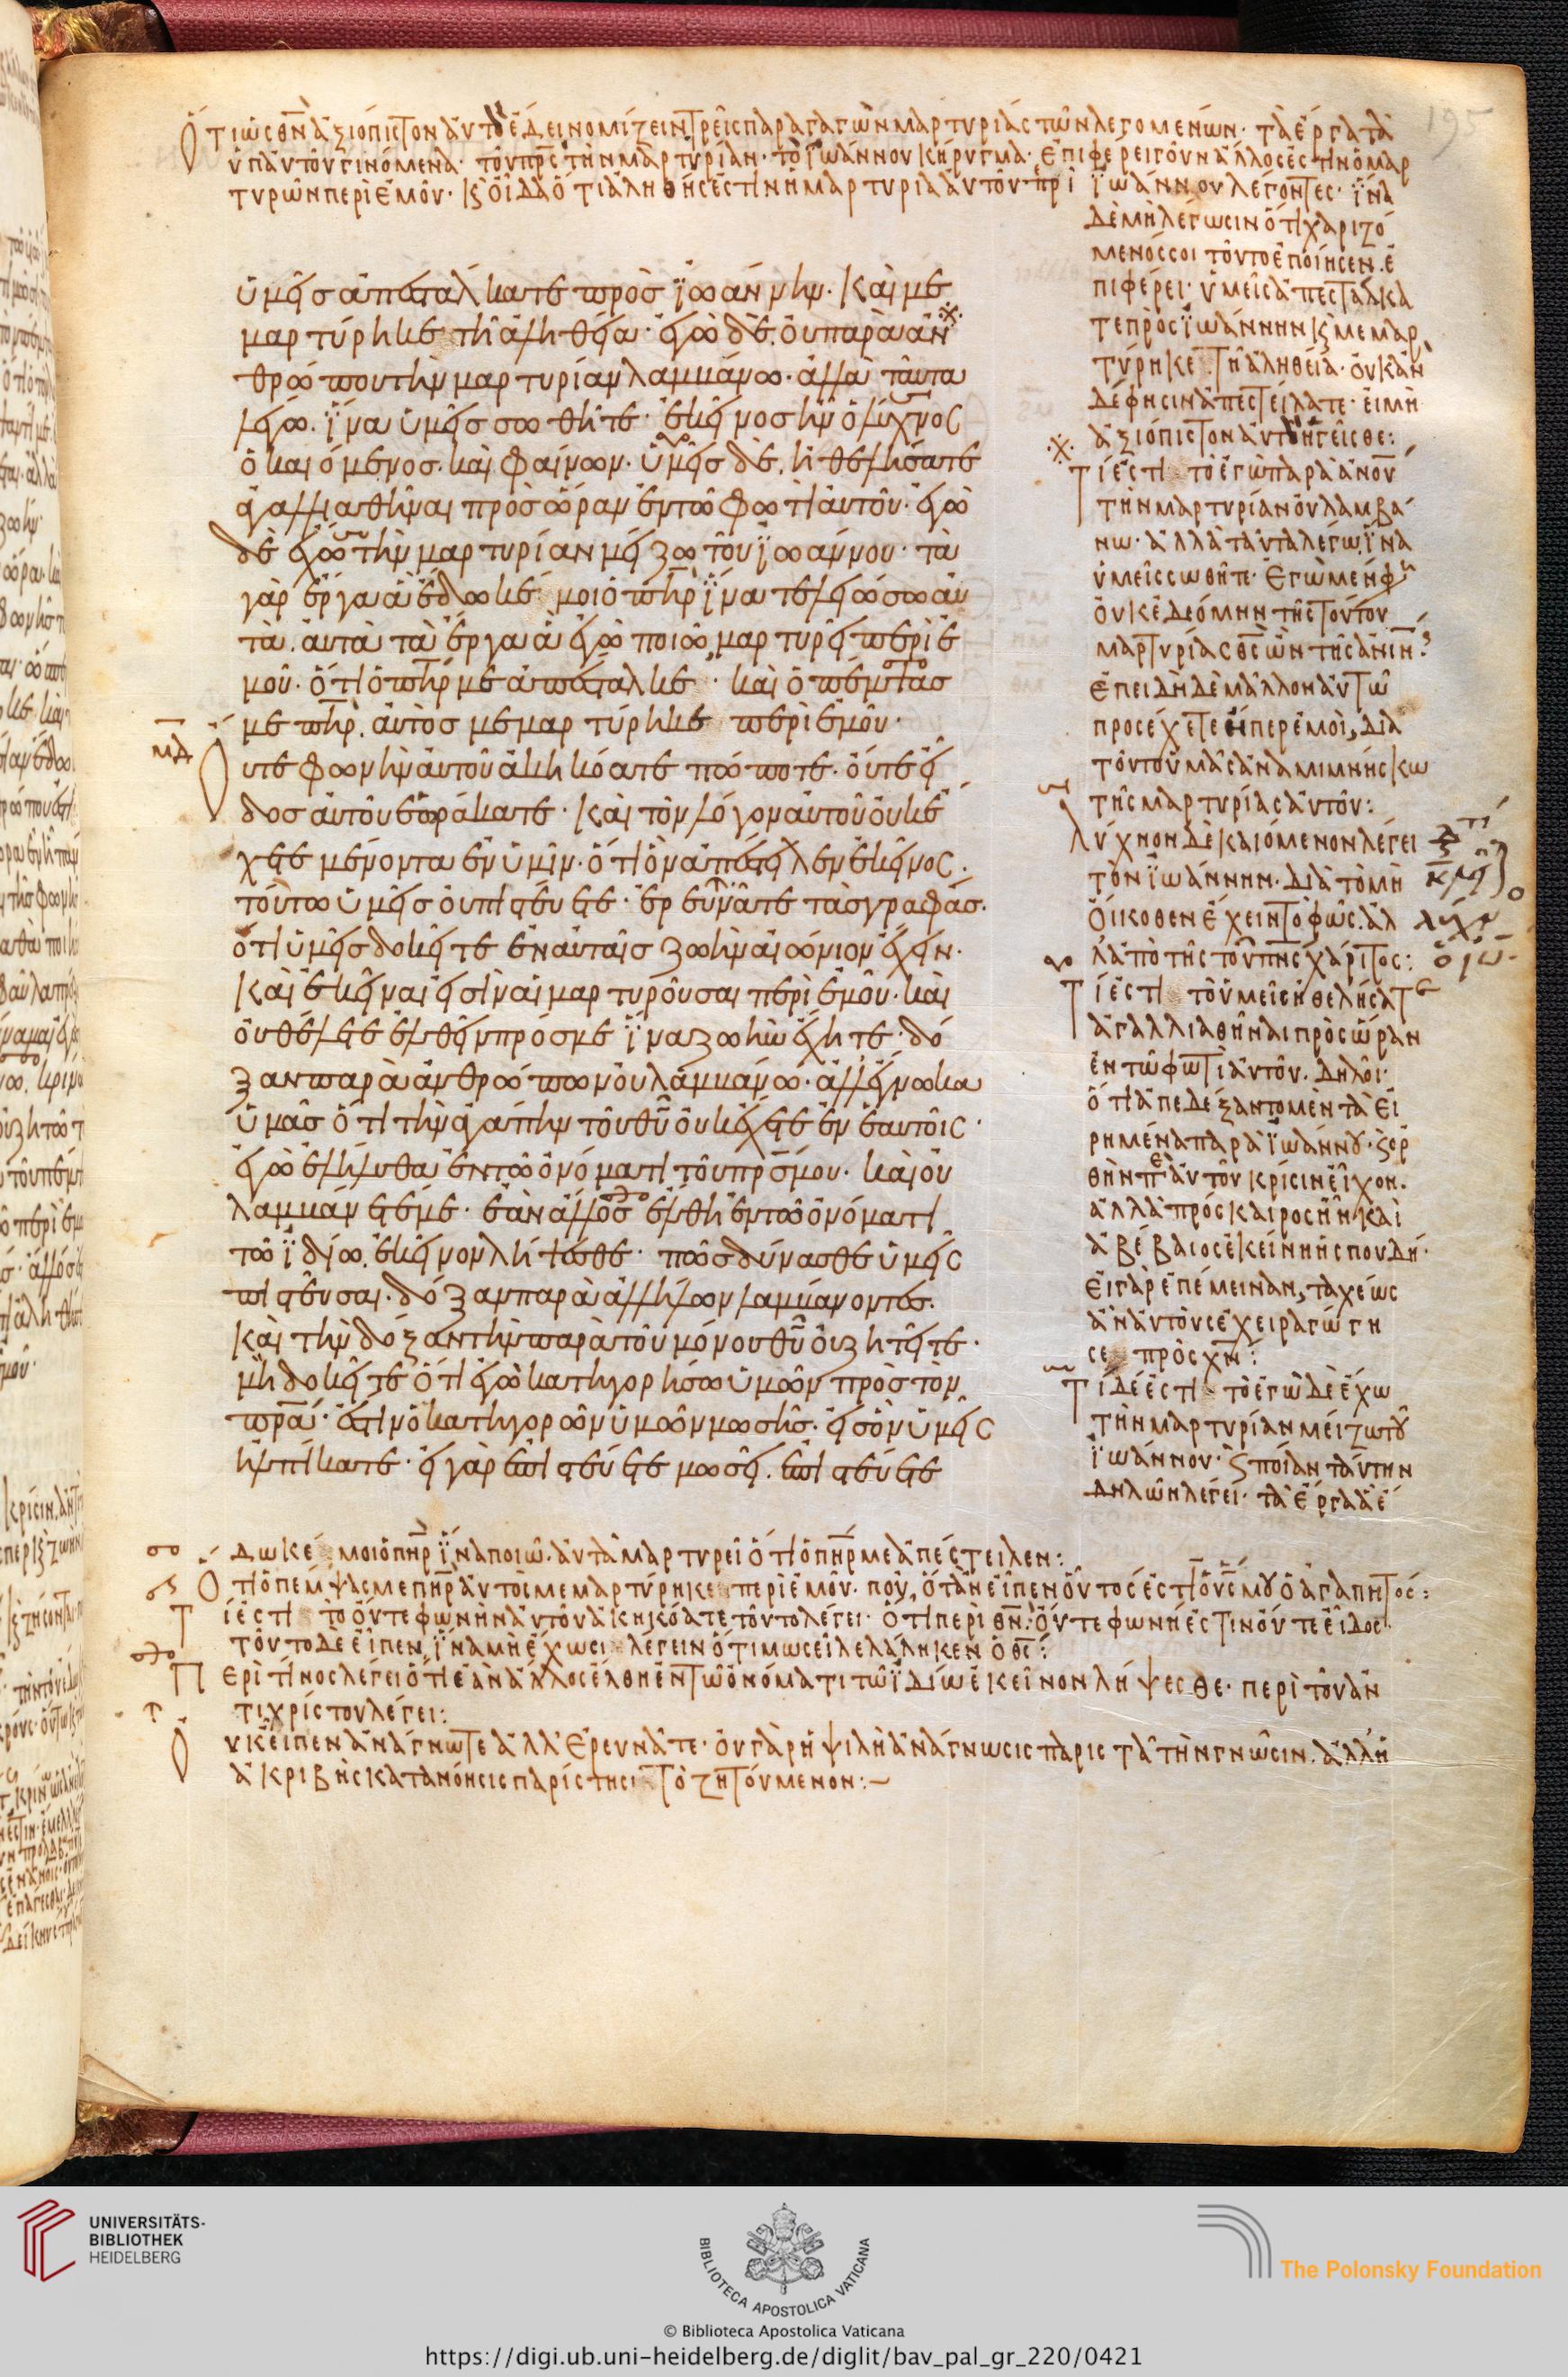 195
Ὅτι ὡς θν ἀξιόπιστον αὐτὸν ἔδει νομίζειν τρεῖς παραγαγὼν μαρτυρίας τῶν λεγομένων· τὰ ἔργα τὰ
ὑπ αὐτοῦ γινόμενα· τοῦ πρς τὴν μαρτυρίαν· τὸ ἰωάννου κήρυγμα· ἐπιφέρει γοῦν ἄλλος ἐστὶν ὁ μαρ
τυρῶν περὶ ἐμοῦ· κ οἶδα ὅτι ἀληθής ἐστιν ἡ μαρτυρία αὐτοῦ· περὶ ἰωάννου λέγοντες· ἵνα
δὲ μὴ λέγωσιν ὅτι χαριζό
μενός σοι τοῦτο ἐποίησεν· ἐ
πιφέρει· ὑμεῖς ἀπεστάλκα
τε πρὸς ἰωάννην κ μεμαρ
τύρηκε τῇ ἀληθείᾳ· οὐκ ἂν
δέ φησιν ἀπεστείλατε· εἰ μὴ
ἀξιόπιστον αὐτὸν ἡγεῖσθε:
ὑμεῖς ἀπεστάλκατε πρὸς ἰωάννην· καὶ με
μαρτύρηκε τῇ ἀληθείᾳ· ἐγὼ δὲ οὐ παρὰ ἀν
θρώπου τὴν μαρτυρίαν λαμβάνω· ἀλλὰ ταῦτα
λέγω· ἵνα ὑμεῖς σωθῆτε· ἐκεῖνος ἦν ὁ λύχνος
ὁ καιόμενος· καὶ φαίνων· ὑμεῖς δὲ ἠθελήσατε
ἀγαλλιαθῆναι πρὸς ὥραν ἐν τῷ φωτὶ αὐτοῦ· ἐγὼ
δὲ ἔχω τὴν μαρτυρίαν μείζω τοῦ ἰωάννου· τὰ
γὰρ ἔργα ἃ ἔδωκέ μοι ὁ πηρ ἵνα τελειώσω αὐ
τὰ· αὐτὰ τὰ ἔργα ἃ ἐγὼ ποιῶ, μαρτυρεῖ περὶ ἐ
μοῦ· ὅτι ὁ πηρ με ἀπέσταλκε· καὶ ὁ πέμψας
με πηρ· αὐτὸς μεμαρτύρηκε περὶ ἐμοῦ·
μδ Οὔτε φωνὴν αὐτοῦ ἀκηκόατε πώποτε· οὔτε εἶ
δος αὐτοῦ ἑωράκατε· καὶ τὸν λόγον αὐτοῦ οὐκ ἔ
χετε μένοντα ἐν ὑμῖν· ὅτι ὃν ἀπέστειλεν ἐκεῖνος·
τούτῳ ὑμεῖς οὐ πιστεύετε· ἐρευνᾶτε τὰς γραφάς·
ὅτι ὑμεῖς δοκεῖτε ἐν αὐταῖς ζωὴν αἰώνιον ἔχειν·
καὶ ἐκεῖναι εἰσὶν αἱ μαρτυροῦσαι περὶ ἐμοῦ· καὶ
οὐ θέλετε ἐλθεῖν πρός με ἵνα ζωὴν ἔχητε· δό
ξαν παρὰ ἀνθρώπων οὐ λαμβάνω· ἀλλ ἔγνωκα
ὑμᾶς ὅτι τὴν ἀγάπην τοῦ θυ οὐκ ἔχετε ἐν ἑαυτοῖς·
ἐγὼ ἐλήλυθα ἐν τῷ ὀνόματι τοῦ πρς μου· καὶ οὐ
λαμβάνετέ με· ἐὰν ἄλλος ἔλθῃ ἐν τῷ ὀνόματι
τῷ ἰδίῳ, ἐκεῖνον λήψεσθε· πῶς δύνασθε ὑμεῖς
πιστεῦσαι· δόξαν παρὰ ἀλλήλων λαμβάνοντες·
καὶ τὴν δόξαν τὴν παρὰ τοῦ μόνου θυ οὐ ζητεῖτε·
μὴ δοκεῖτε ὅτι ἐγὼ κατηγορήσω ὑμῶν πρὸς τὸν
πρα· ἔστιν ὁ κατηγορῶν ὑμῶν μωσῆς· εἰς ὃν ὑμεῖς
ἠλπίκατε· εἰ γὰρ ἐπιστεύετε μωσεῖ· ἐπιστεύετε
Τί ἐστι τὸ ἐγὼ παρὰ ανου
τὴν μαρτυρίαν οὐ λαμβά
νω· ἀλλὰ ταῦτα λέγω, ἵνα
ὑμεῖς σωθῆτε· ἐγὼ μέν φη
οὐκ ἐδεόμην τῆς τούτου
μαρτυρίας θς ὢν τῆς ανινης
ἐπειδὴ δὲ μᾶλλον αὐτῷ
προσέχετε ἤπερ ἐμοὶ, διὰ
τοῦτο ὑμᾶς ἀναμιμνήσκω
τῆς μαρτυρίας αὐτοῦ:
Λύχνον δὲ καιόμενον λέγει
τὸν ἰωάννην· διὰ τὸ μὴ
οἴκοθεν ἔχειν τὸ φῶς· ἀλ
λὰ ἀπὸ τῆς τοῦ πνς χάριτος:
Τί ἐστι τὸ ὑμεῖς ἠθελήσατε
ἀγαλλιαθῆναι πρὸς ὥραν
ἐν τῷ φωτὶ αὐτοῦ· δηλοῖ
ὅτι ἀπεδέξαντο μὲν τὰ εἰ
ρημένα παρὰ ἰωάννου·
ἀλλὰ πρόσκαιρος ἦν καὶ
ἀβέβαιος ἐκείνη ἡ σπουδή·
εἰ γὰρ ἐπέμειναν, ταχέως
ἂν αὐτοὺς ἐχειραγώγη
σε πρὸς χν:
Τί δέ ἐστι τὸ ἐγὼ δὲ ἔχω
τὴν μαρτυρίαν μείζω τοῦ
ἰωάννου· ποίαν ταύτην
δηλῶν λέγει· τὰ ἔργα ἃ ἔ
δωκέ μοι ὁ πηρ ἵνα ποιῶ· αὐτὰ μαρτυρεῖ ὅτι ὁ πηρ με ἀπέστειλεν:
Ὅτι ὁ πέμψας με πηρ αὐτός μεμαρτύρηκε περὶ ἐμοῦ· ποῦ, ὅταν εἶπεν οὗτός ἐστιν ὁ υς μου ὁ ἀγαπητός:
Τί ἐστι τὸ οὔτε φωνὴν αὐτοῦ ἀκηκόατε τοῦτο λέγει· ὅτι περὶ θν· οὔτε φωνή ἐστιν οὔτε εἶδος·
τοῦτο δὲ εἶπεν, ἵνα μὴ ἔχωσι λέγειν ὅτι μωσεῖ λελάληκεν ὁ θς:
Περὶ τίνος λέγει ὅτι ἐὰν ἄλλος ἔλθῃ ἐν τῷ ὀνόματι τῷ ἰδίῳ ἐκεῖνον λήψεσθε· περὶ τοῦ ἀν
τιχρίστου λέγει:
Οὐκ εἶπεν ἀνάγνωτε ἀλλ ἐρευνᾶτε· οὐ γὰρ ἡ ψιλὴ ἀνάγνωσις παριστᾷ τὴν γνῶσιν· ἀλλ ἡ
ἀκριβὴς κατανόησις παρίστησι τὸ ζητούμενον:
UNIVERSITÄTS-
BIBLIOTHEK
HEIDELBERG
BIBLIOTECA APOSTOLICA VATICANA
The Polonsky Foundation
© Biblioteca Apostolica Vaticana
https://digi.ub.uni-heidelberg.de/diglit/bav_pal_gr_220/0421